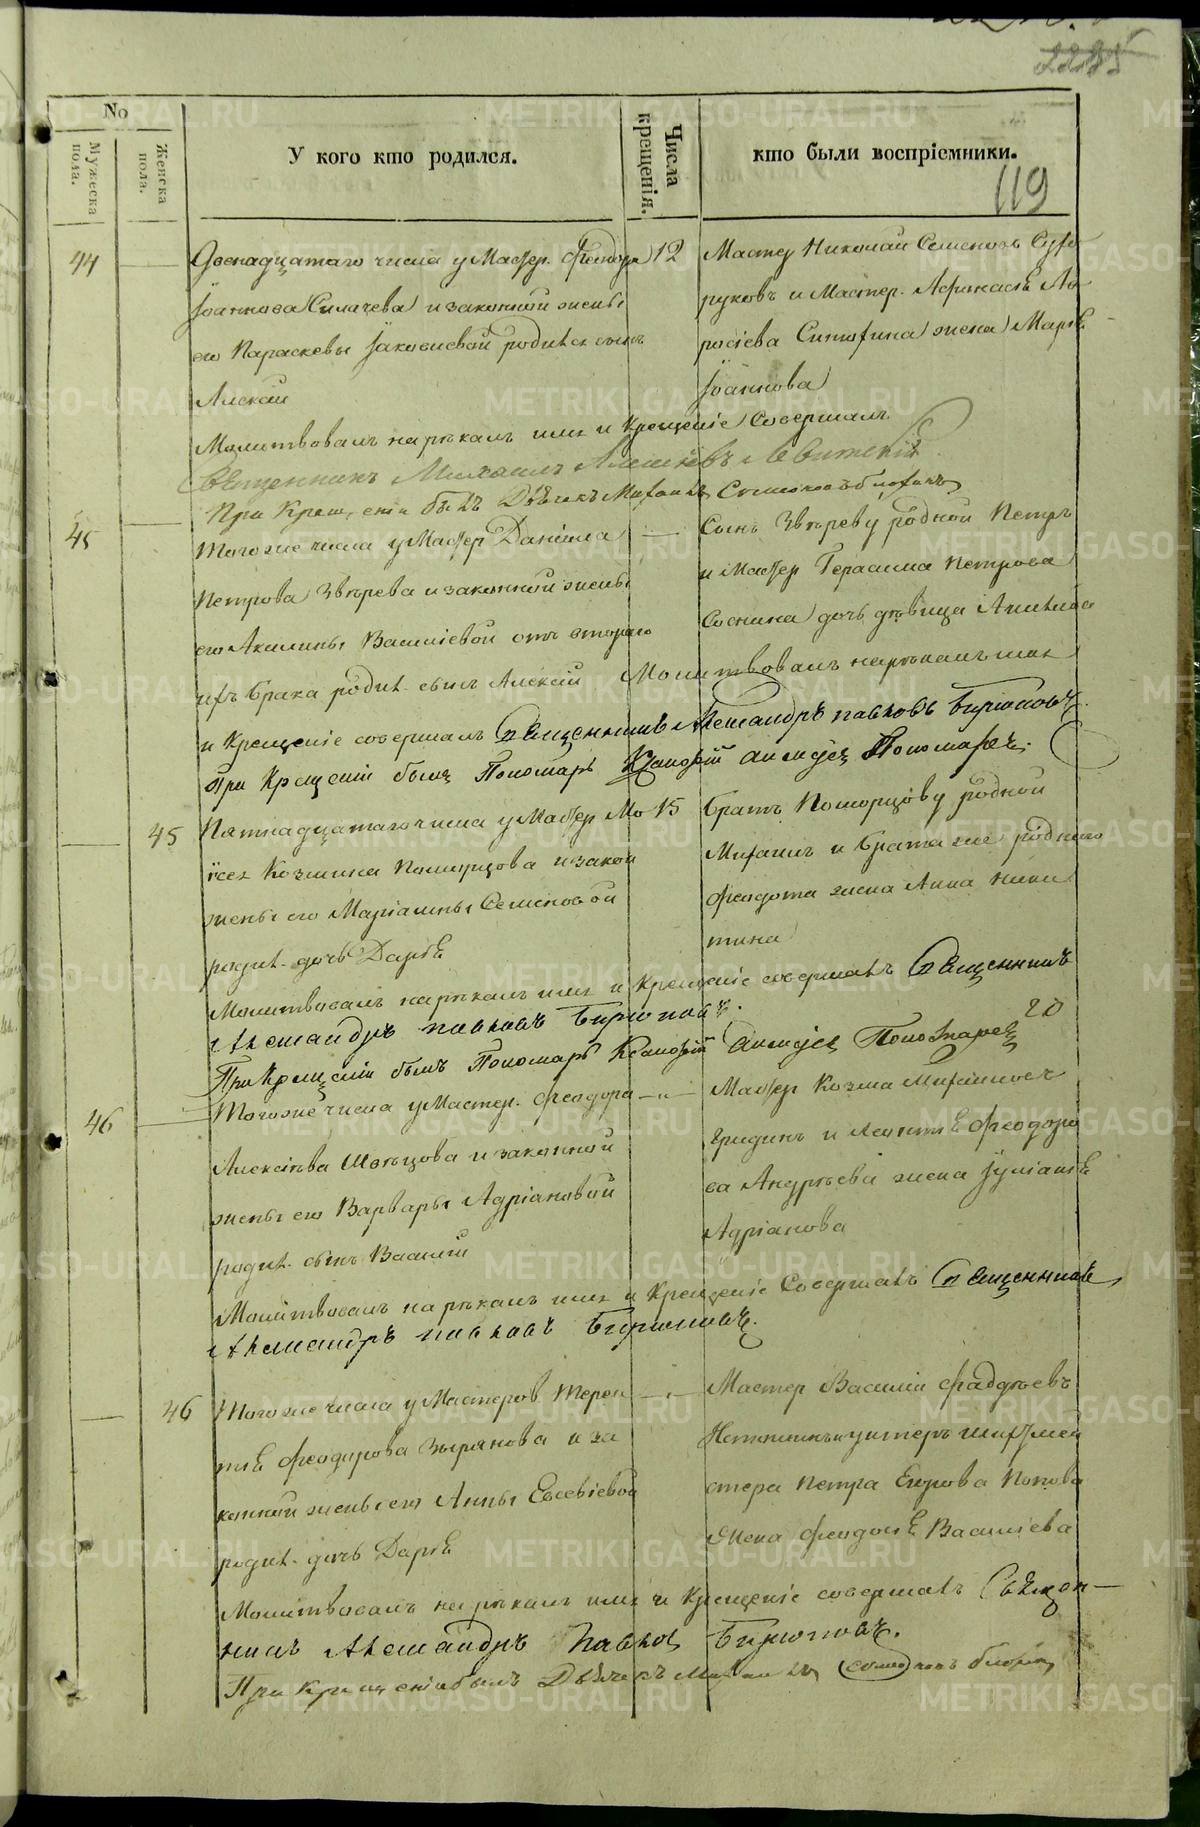 2285
No
Мужеска пола.
Женска пола.
У кого кто родился.
Числа крещенія.
кто были воспріемники.
119
44
Двенадцатаго числа у Мастер. Феодора
Іоаннова Силачева и законной жены
его Параскевы Іаковлевой родился сынъ
Алексий
12
Мастер Николай Семеновъ Суфо
руковъ и Мастер. Афанасія
жена Марія
Іоаннова
Молитвовалъ нарѣкалъ имя и Крещеніе Совершалъ
Священникъ Михаилъ Алексіевъ Левитскій
При Крещеніи былъ Дьячекъ Михаилъ
45
Тогоже числа у Мастер Даніила
Петрова Звѣрева и законной жены
его Акилины Василіевой отъ втораго
ихъ брака родил. сынъ Алексій
Сынъ Звѣреву родной Петръ
и Мастер Герасима Петрова
Соснина дочь дѣвица
Молитвовалъ нарѣкалъ имя
и Крещеніе совершалъ Священникъ Александръ Павловъ Бирюковъ
При Крещеніи былъ Пономарь Пономаревъ.
45
Пятнадцатаго числа у Мастер Мо
исея Козмина Поморцова и закон
жены его Маріамны Семеновой
родил. дочь Дарія
15
Братъ Поморцову родной
Михаилъ и брата же роднаго
Феодота жена Анна Ники
тина
Молитвовалъ нарѣкалъ имя и Крещеніе совершалъ Священникъ
Александръ Павловъ Бирюковъ.
При Крещеніи былъ Пономарь Пономаревъ
46
Тогоже числа у Мастер. Феодора
Алексіева Швецова и законной
жены его Варвары Адріановой
родил. сынъ Василій
Мастер Козма Михайловъ
Гридинъ и Леонтія Феодоро
ва Андреева жена Іуліанія
Адріанова
Молитвовалъ нарѣкалъ имя и Крещеніе Совершалъ Священникъ
Александръ Павловъ Бирюковъ.
46
Тогоже числа у Мастеров. Терен
тія Феодорова Зырянова и за
конной жены его Анны Евсевіевой
родил. дочь Дарія
Мастер Василій Фаддѣевъ
и унтеръ шихтмей
стера Петра Егорова Попова
Жена Феодосія Василіева
Молитвовалъ нарѣкалъ имя и Крещеніе совершалъ Священ-
никъ Александръ Павлов Бирюковъ.
При Крещеніи былъ Дьячекъ Михаилъ
METRIKI.GASO-URAL.RU